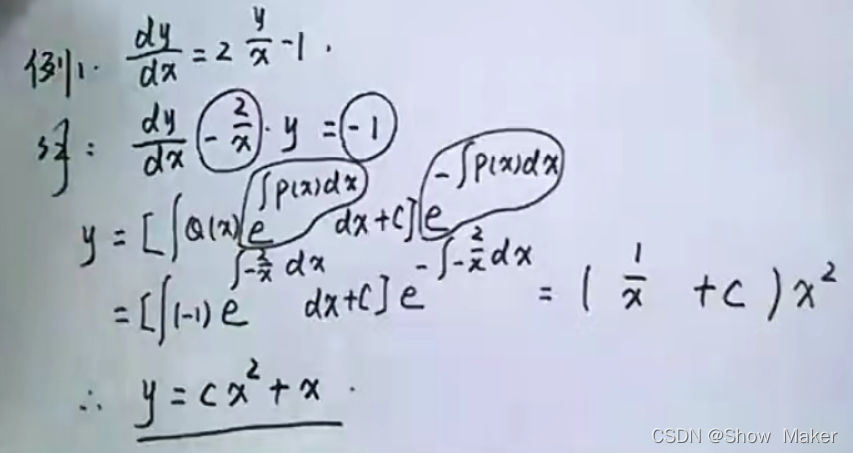 例1. dy/dx = 2 y/x - 1 .
解: dy/dx - 2/x · y = -1
y = [∫Q(x) e^(∫P(x)dx) dx + C] e^(-∫P(x)dx)
= [∫(-1) e^(∫-2/x dx) dx + C] e^(-∫-2/x dx) = ( 1/x + C ) x²
∴ y = Cx² + x .
CSDN @Show Maker